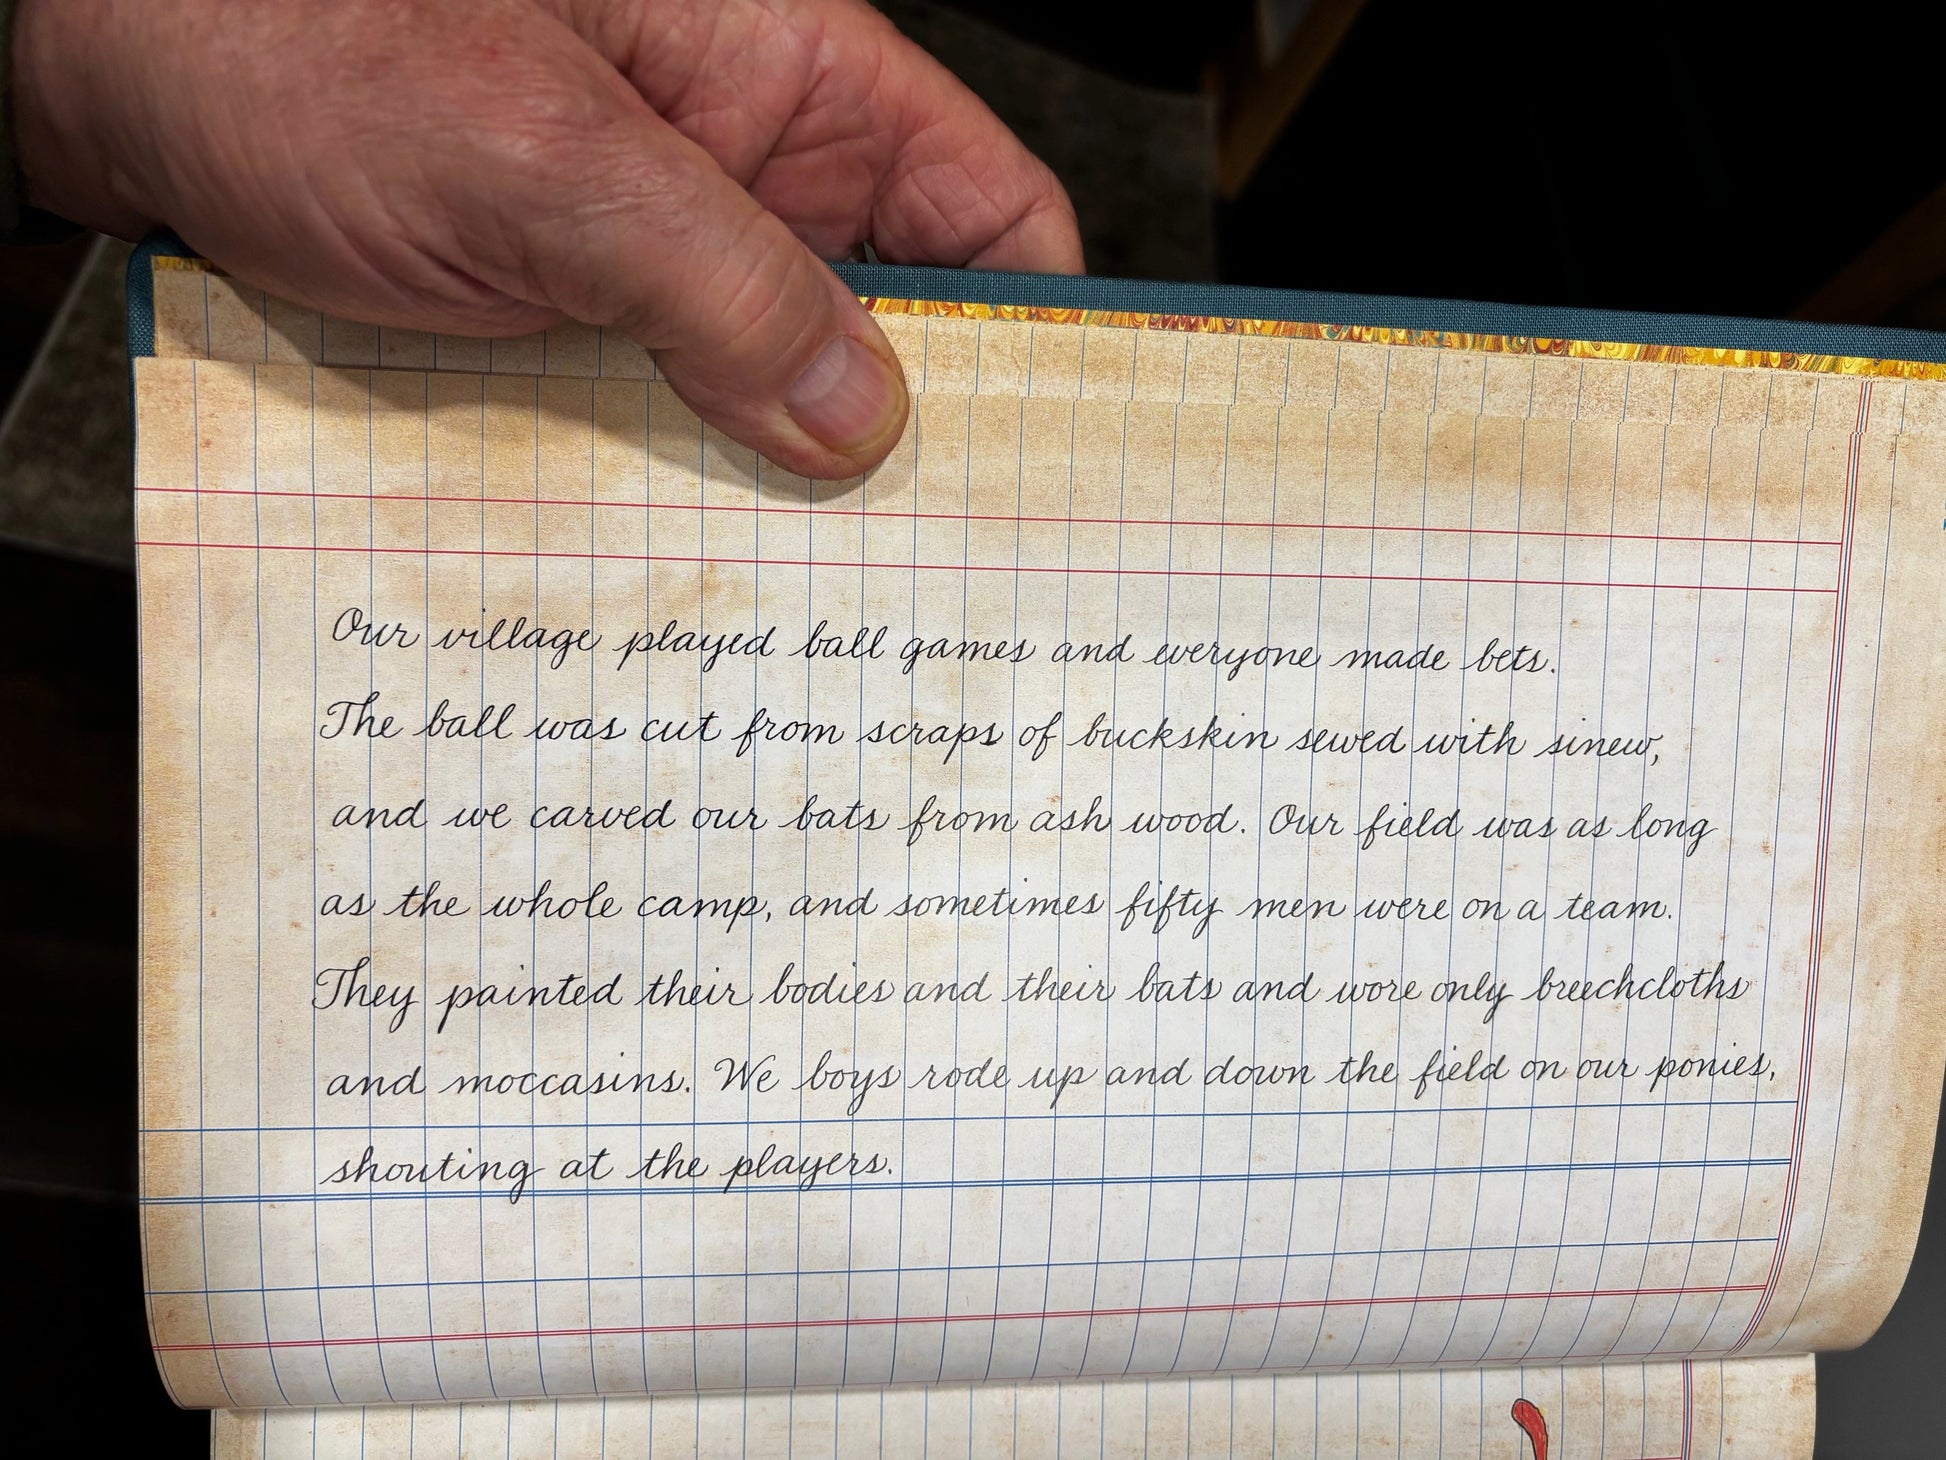 Our village played ball games and everyone made bets.
The ball was cut from scraps of buckskin sewed with sinew,
and we carved our bats from ash wood. Our field was as long
as the whole camp, and sometimes fifty men were on a team.
They painted their bodies and their bats and wore only breechcloths
and moccasins. We boys rode up and down the field on our ponies,
shouting at the players.